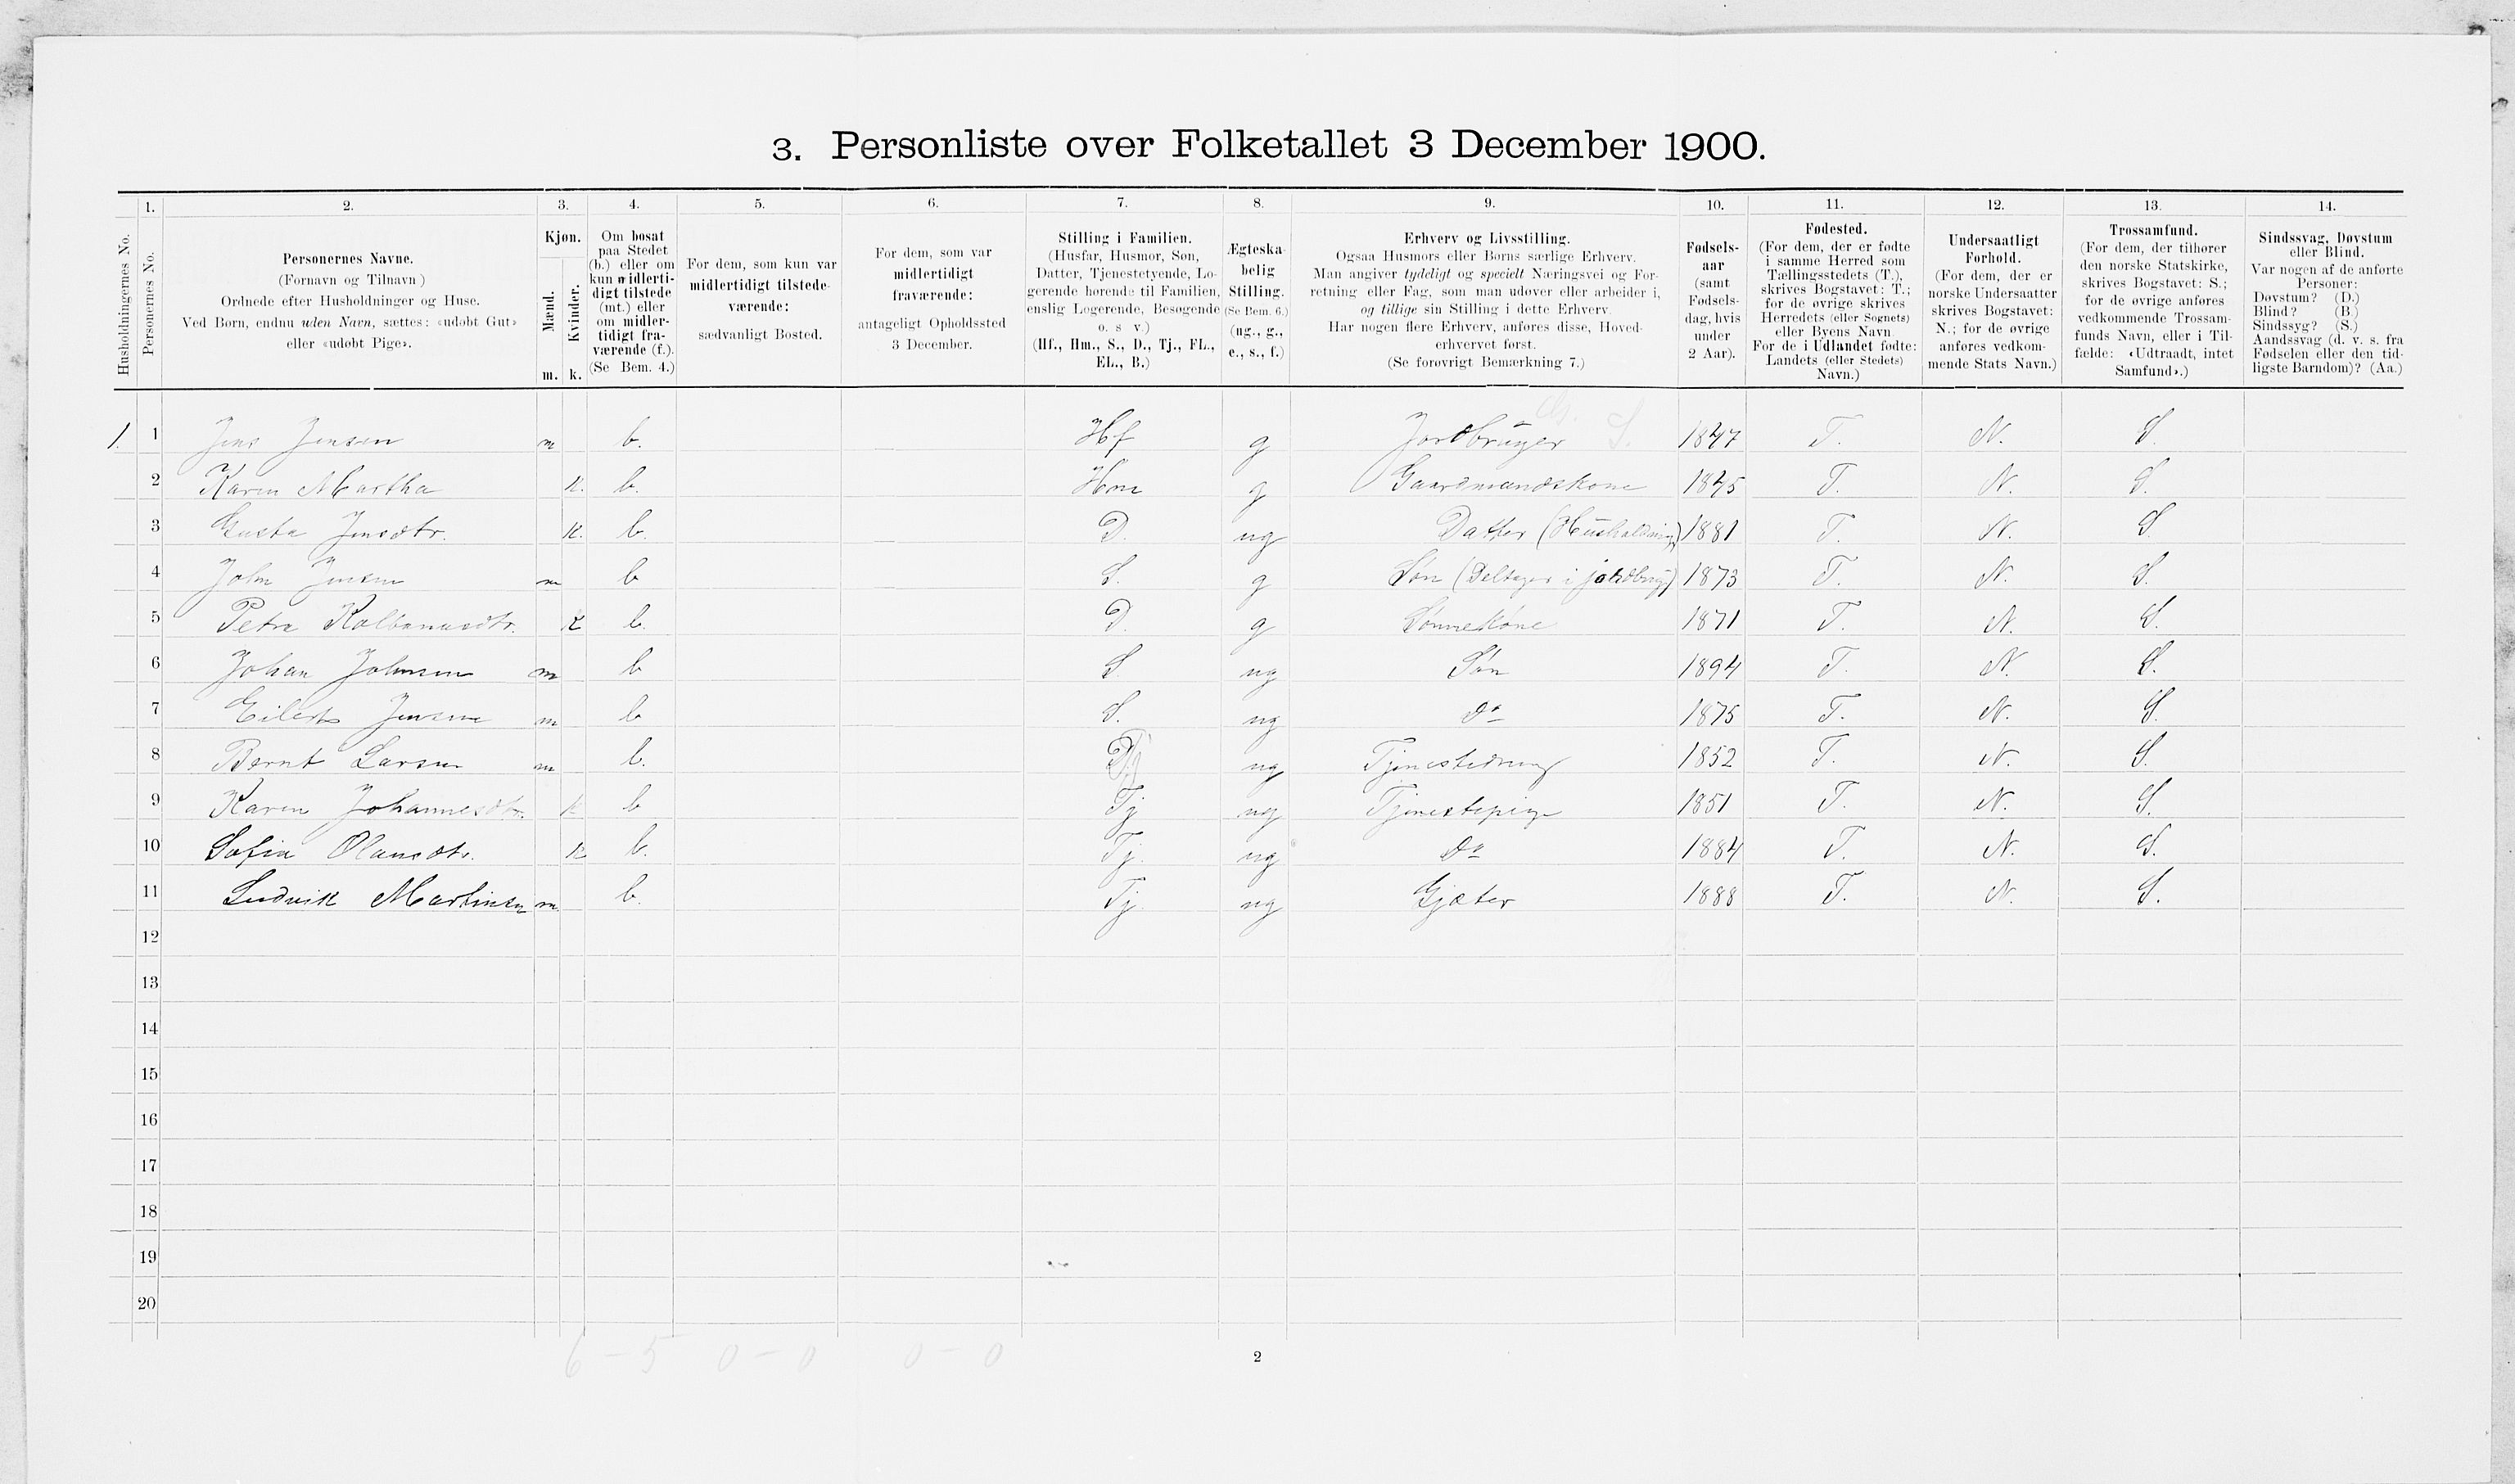 3. Personliste over Folketallet 3 December 1900.
Husholdningernes No.
1.
Personernes No.
2.
Personernes Navne.
(Fornavn og Tilnavn)
Ordnede efter Husholdninger og Huse.
Ved Børn, endnu uden Navn, sættes: «udøbt Gut»
eller «udøbt Pige».
3.
Kjøn.
Mænd.
Kvinder.
m. k.
4.
Om bosat
paa Stedet
(b.) eller om
kun midlerti-
digt tilstede
(mt.) eller
om midler-
tidigt fra-
værende (f.).
(Se Bem. 4.)
5.
For dem, som kun var
midlertidigt tilstede-
værende:
sædvanligt Bosted.
6.
For dem, som var
midlertidigt
fraværende:
antageligt Opholdssted
3 December.
7.
Stilling i Familien.
(Husfar, Husmor, Søn,
Datter, Tjenestetyende, Lo-
gerende hørende til Familien,
enslig Logerende, Besøgende
o. s v.)
(Hf., Hm., S., D., Tj., FL.,
EL., B.)
8.
Ægteska-
belig
Stilling.
(Se Bem. 6.)
(ug., g.,
e., s., f.)
9.
Erhverv og Livsstilling.
Ogsaa Husmors eller Børns særlige Erhverv.
Man angiver tydeligt og specielt Næringsvei og For-
retning eller Fag, som man udøver eller arbeider i,
og tillige sin Stilling i dette Erhverv.
Har nogen flere Erhverv, anføres disse, Hoved-
erhvervet først.
(Se forøvrigt Bemærkning 7.)
10.
Fødsels-
aar
(samt
Fødsels-
dag, hvis
under
2 Aar).
11.
Fødested.
(For dem, der er fødte
i samme Herred som
Tællingsstedets (T.),
skrives Bogstavet: T.;
for de øvrige skrives
Herredets (eller Sognets)
eller Byens Navn
For de i Udlandet fødte:
Landets (eller Stedets)
Navn.)
12.
Undersaatligt
Forhold.
(For dem, der er
norske Undersaatter
skrives Bogstavet:
N.; for de øvrige
anføres vedkom-
mende Stats Navn.)
13.
Trossamfund.
(For dem, der tilhører
den norske Statskirke,
skrives Bogstavet: S.;
for de øvrige anføres
vedkommende Trossam-
funds Navn, eller i Til-
fælde: «Udtraadt, intet
Samfund».)
14.
Sindssvag, Døvstum
eller Blind.
Var nogen af de anførte
Personer:
Døvstum? (D.)
Blind? (B.)
Sindssyg? (S.)
Aandssvag (d. v. s. fra
Fødselen eller den tid-
ligste Barndom)? (Aa.)
1. 1 Jens Jensen m b. Hf g Jordbruger S. 1847 T. N. S.
2 Karen Martha k. b. Hm g Gaardmandskone 1845 T. N. S.
3 Gusta Jensdtr. k. b. D. ug Datter (Husholdning) 1881 T. N. S
4 John Jensen m b S. g Søn (Deltager i jordbrug) 1873 T. N. S.
5 Petra k b. D. g Sønnekone 1871 T. N. S.
6 Johan Johnsen m b S. ug Søn 1894 T. N. S.
7 Eilert Jensen m b S. ug do 1875 T. N. S.
8 Bernt Larsen m b. Tj ug Tjenestedreng 1852 T. N. S.
9 Karen Johannesdtr. k b Tj ug Tjenestepige 1851 T. N. S.
10 Sofia Olausdtr. k b. Tj. ug Do 1884 T. N. S.
11 Ludvik Martinsen m b. Tj ug Gjæter 1888 T. N. S.
12
13
14
15
16
17
18
19
20
6 – 5 0 – 0 0 – 0
2